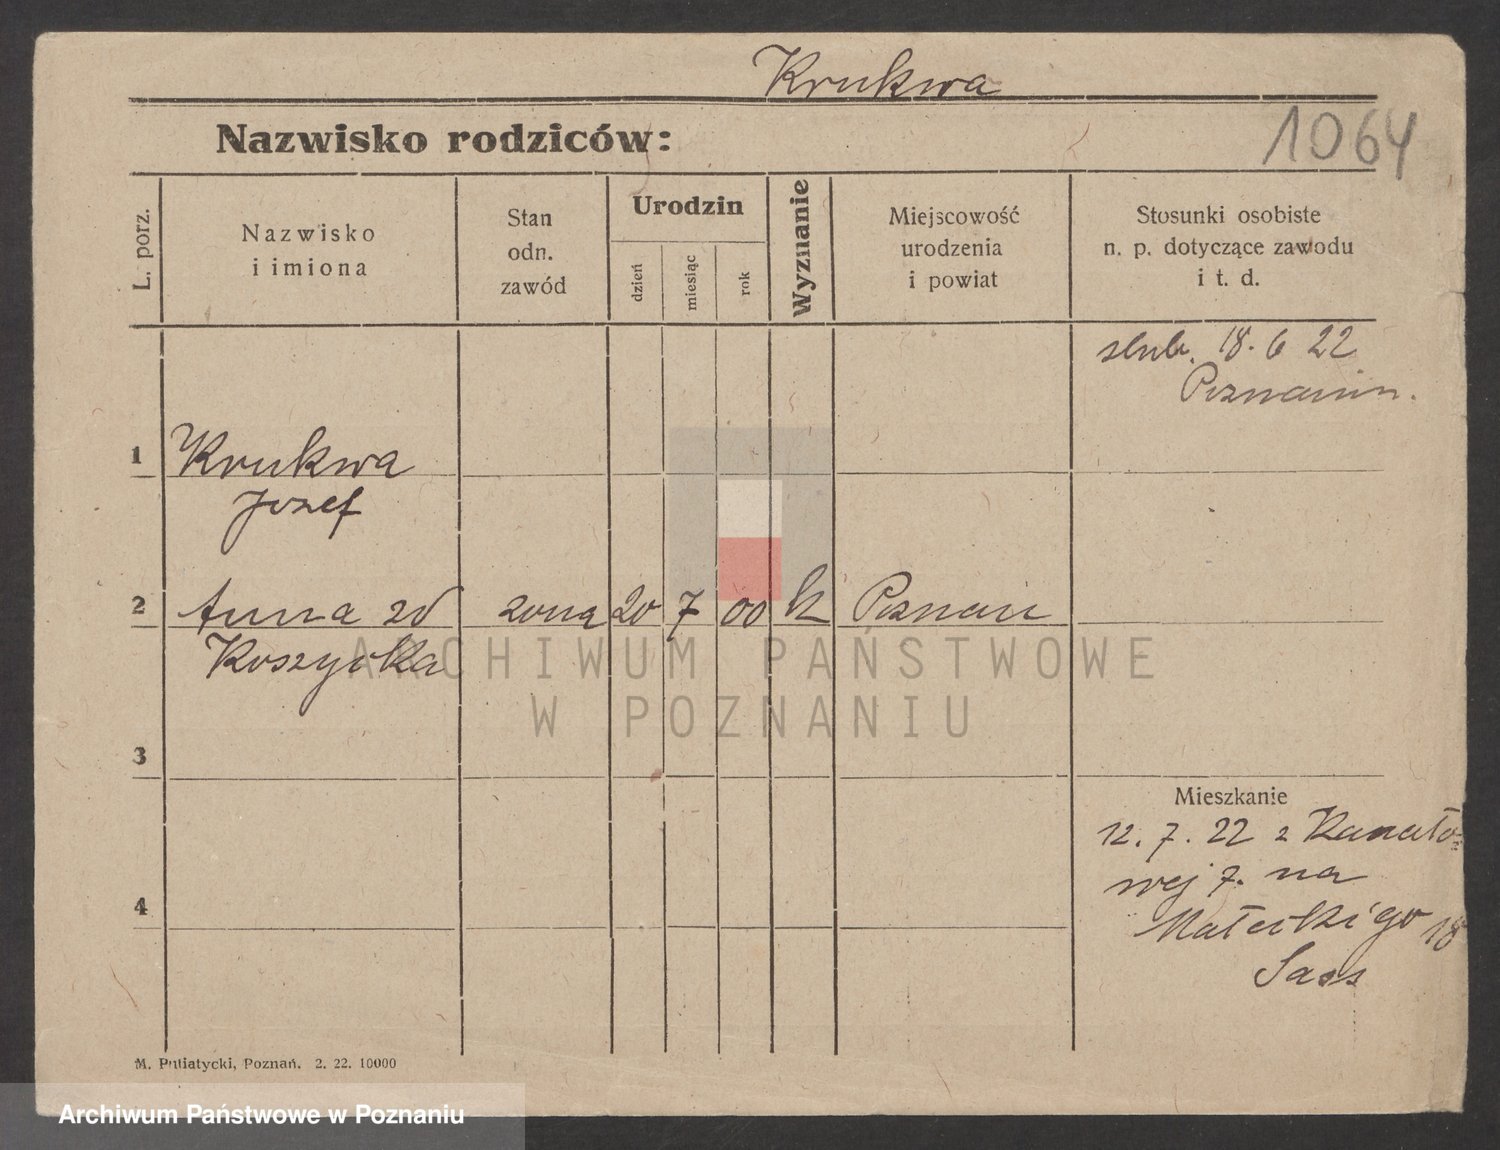 Krukwa
Nazwisko rodziców:
1064
L. porz.
Nazwisko
i imiona
Stan
odn.
zawód
Urodzin
dzień
miesiąc
rok
Wyznanie
Miejscowość
urodzenia
i powiat
Stosunki osobiste
n. p. dotyczące zawodu
i t. d.
ślub. 18. 6 22
Poznaniu.
1 Krukwa
Jozef
2 Anna zd żona 20 7 00 k Poznań
Koszycka
ARCHIWUM PAŃSTWOWE
W POZNANIU
3
Mieszkanie
12. 7. 22 z Kanało-
wej 7. na
4
Małeckigo 18
Sass
M. Putiatycki, Poznań. 2. 22. 10000
Archiwum Państwowe w Poznaniu